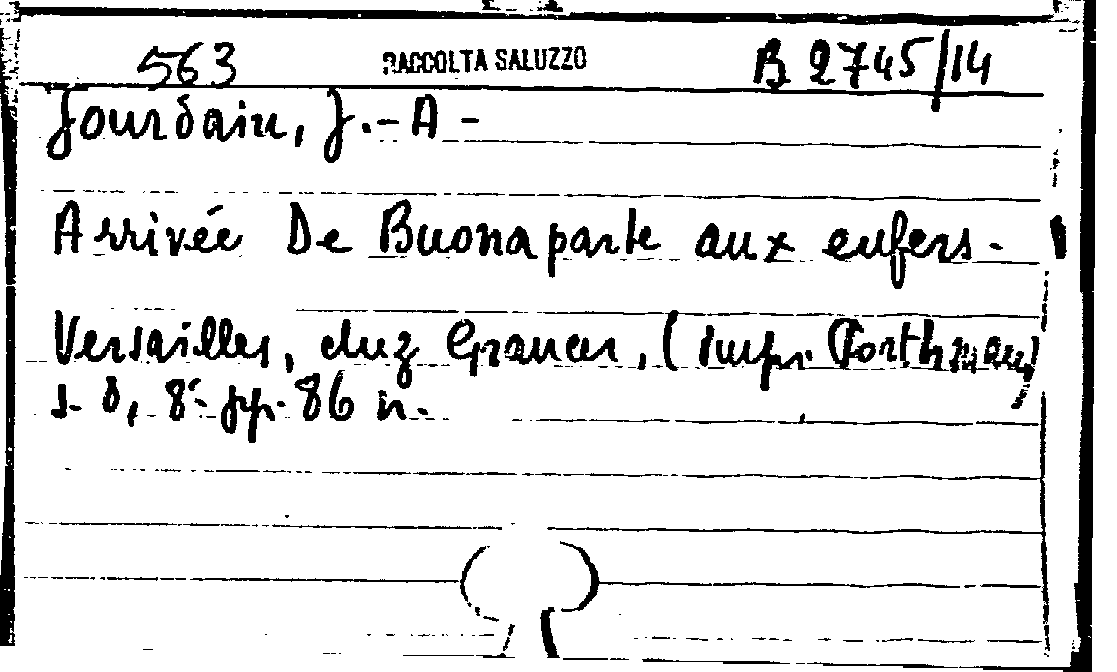 563 RACCOLTA SALUZZO B 2745/14
Jourdain, J.-A-
Arrivée De Buonaparte aux enfers.
Versailles, chez (impr. Porthmann)
s. d, 8° pp. 86 n.